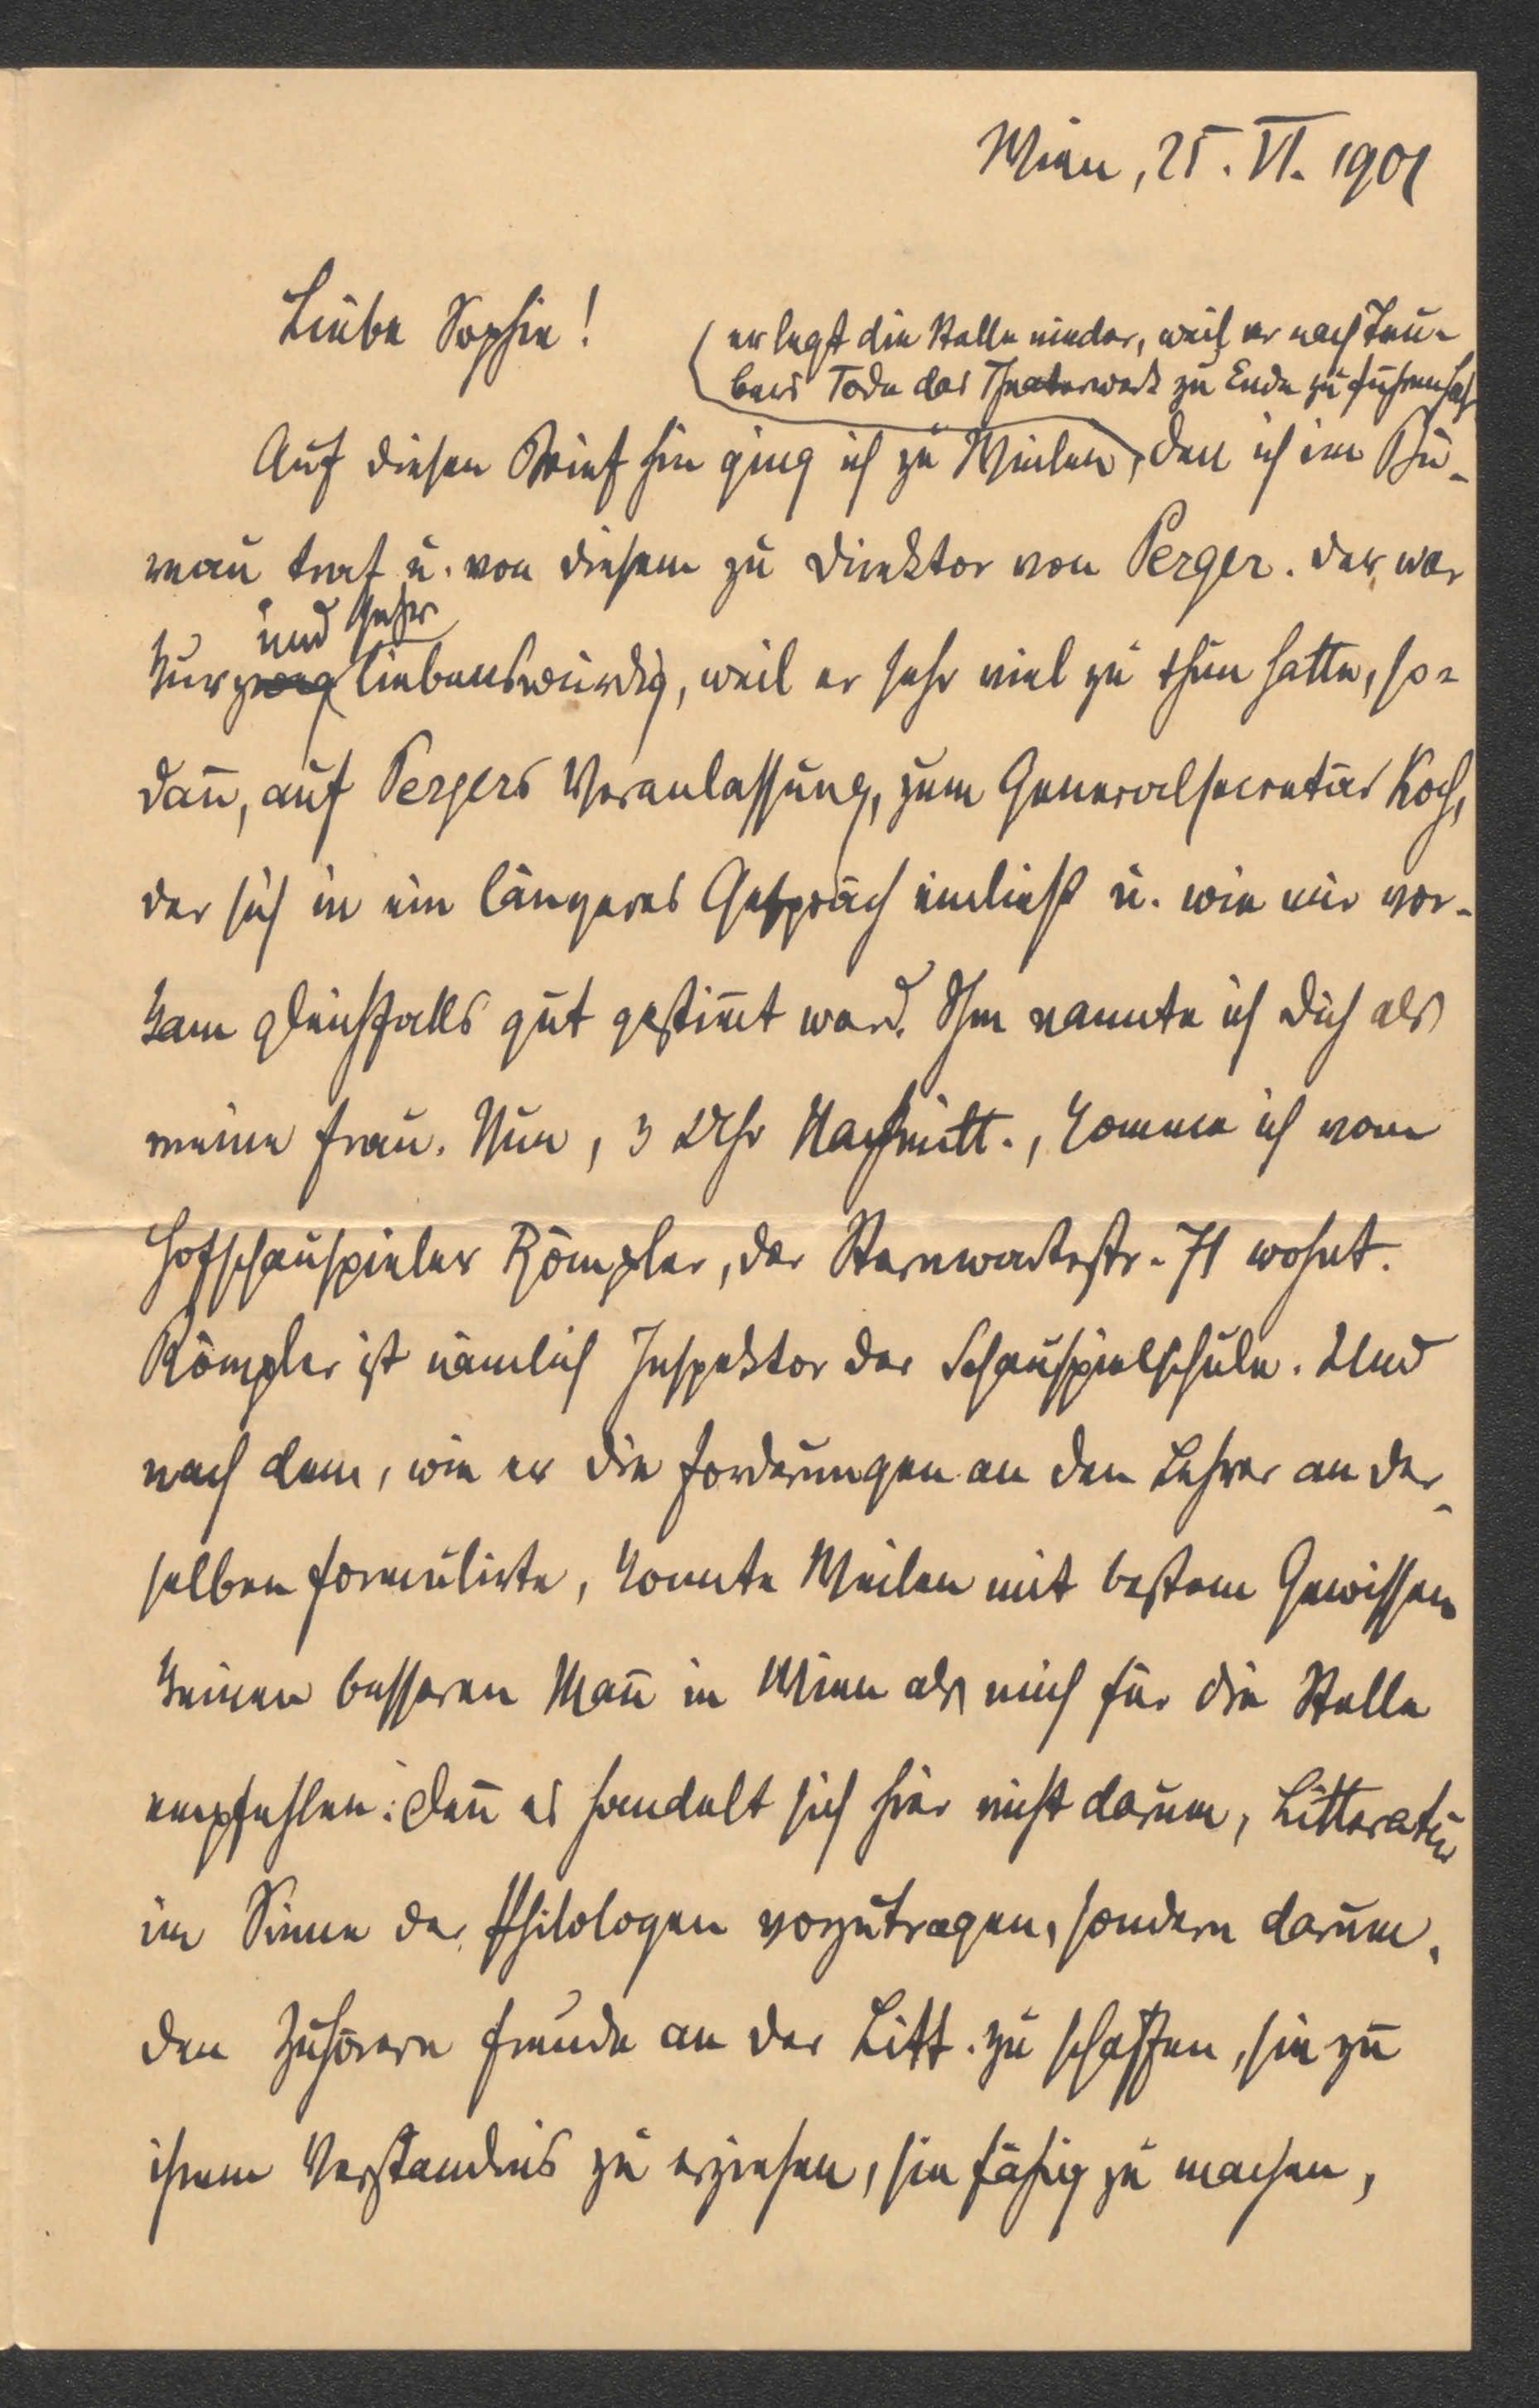 Wien, 25. VI. 1901
Liebe Sophie!
(er legt die Stelle nieder, weil er nach Teu-
bers Tode das Theaterwerk zu Ende zu führen hat)
Auf diesen Brief hin ging ich zu Weilen, den ich im Bu-
reau traf u. von diesem zu Direktor von Perger. Der war
und sehr
kurz liebenswürdig, weil er sehr viel zu thun hatte, so-
dan̄, auf Pergers Veranlassung, zum Generalsecretär Koch,
der sich in ein längeres Gespräch einließ u. wie mir vor-
kam gleichfalls gut gestim̄t ward. Ihm nannte ich Dich als
meine Frau. Nun, 3 Uhr Nachmitt., komme ich vom
Hofschauspieler Römpler, der Sternwartestr. 71 wohnt.
Römpler ist nämlich Inspektor der Schauspielschule. Und
nach dem, wie er die Forderungen an den Lehrer an der-
selben formulirte, konnte Weilen mit bestem Gewissen
keinen besseren Man̄ in Wien als mich für die Stelle
empfehlen: den̄ es handelt sich hier nicht darum, Litteratur
im Sinne der Philologen vorzutragen, sondern darum,
den Zuhörern Freude an der Litt. zu schaffen, sie zu
ihrem Verständnis zu erziehen, sie fähig zu machen,